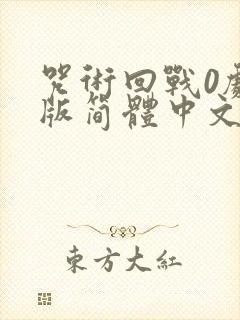 咒術回戰0劇
版简體中文
東方大紅